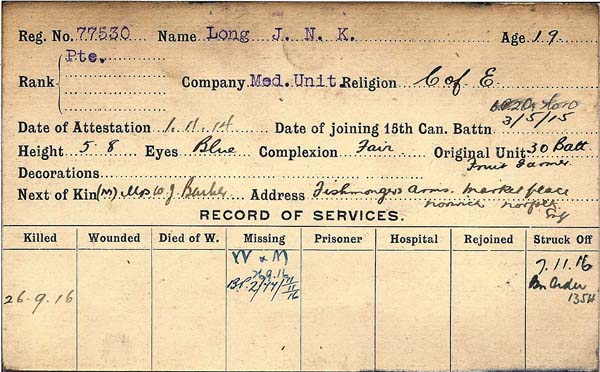 Reg. No. 77530 Name Long J. N. K. Age 19
Pte.
Rank Company Med. Unit. Religion C of E
3/5/15
Date of Attestation 1.11.14 Date of joining 15th Can. Battn
Height 5.8 Eyes Blue Complexion Fair Original Unit 30 Batt
Decorations Fruit Farmer
Next of Kin (M) Mrs W. J. Barber Address Fishmongers Arms. Market place
Norwich Norfolk
Eng
RECORD OF SERVICES.
Killed Wounded Died of W. Missing Prisoner Hospital Rejoined Struck Off
W & M 7.11.16
26.9.16 26.9.16 Bn Order
1354